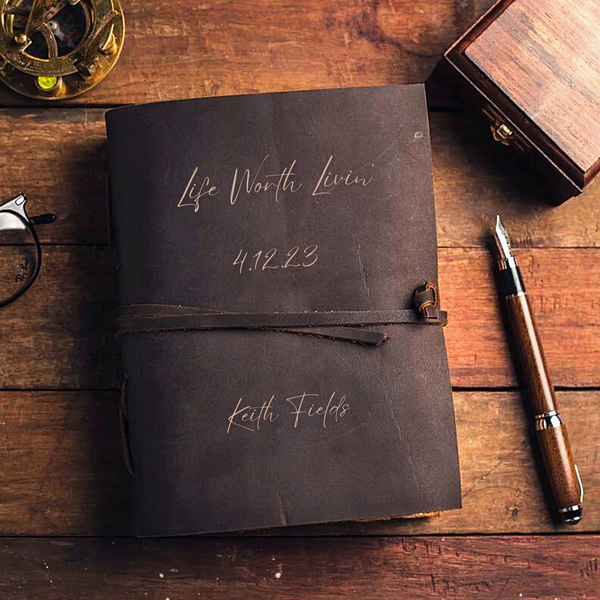 Life Worth Livin'
4.12.23
Keith Fields